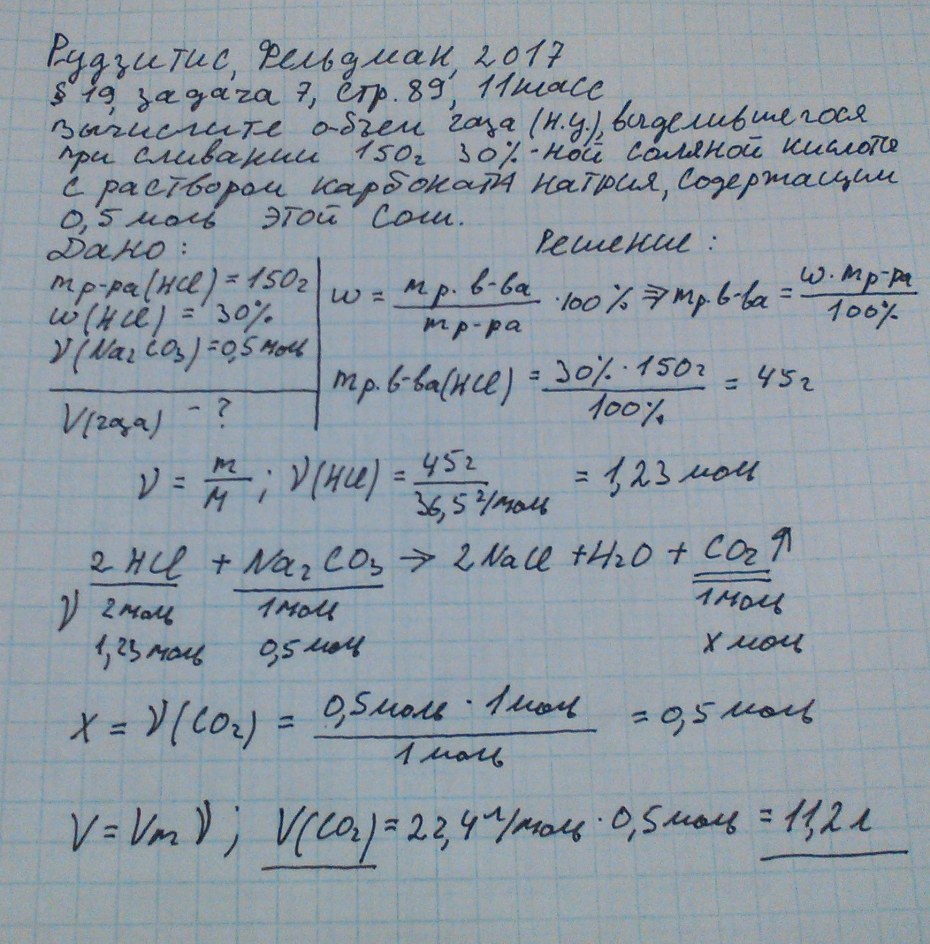 Рудзитис, Фельдман, 2017
§ 19, задача 7, стр. 89, 11 класс
Вычислите объем газа (н.у.), выделившегося
при сливании 150г 30%-ной соляной кислоты
с раствором карбоната натрия, содержащим
0,5 моль этой соли.
Дано: Решение:
mр-ра(HCl) = 150г
ω(HCl) = 30%
ν(Na₂CO₃) = 0,5 моль
V(газа) - ?
ω = mр.в-ва / mр-ра · 100% ⇒ mр.в-ва = ω · mр-ра / 100%
mр.в-ва(HCl) = 30% · 150г / 100% = 45г
ν = m / M ; ν(HCl) = 45г / 36,5 г/моль = 1,23 моль
2HCl + Na₂CO₃ → 2NaCl + H₂O + CO₂↑
ν 2 моль 1 моль 1 моль
1,23 моль 0,5 моль x моль
x = ν(CO₂) = 0,5 моль · 1 моль / 1 моль = 0,5 моль
V = Vm ν ; V(CO₂) = 22,4 л/моль · 0,5 моль = 11,2 л